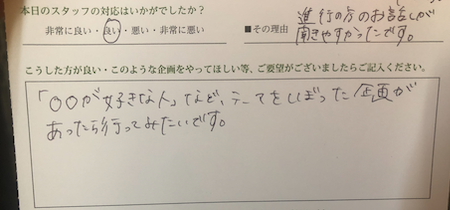 本日のスタッフの対応はいかがでしたか？
非常に良い・良い・悪い・非常に悪い
■その理由
進行の方のお話しが
聞きやすかったです。
こうした方が良い・このような企画をやってほしい等、ご要望がございましたらご記入ください。
「○○が好きな人」など、テーマをしぼった企画が
あったら行ってみたいです。